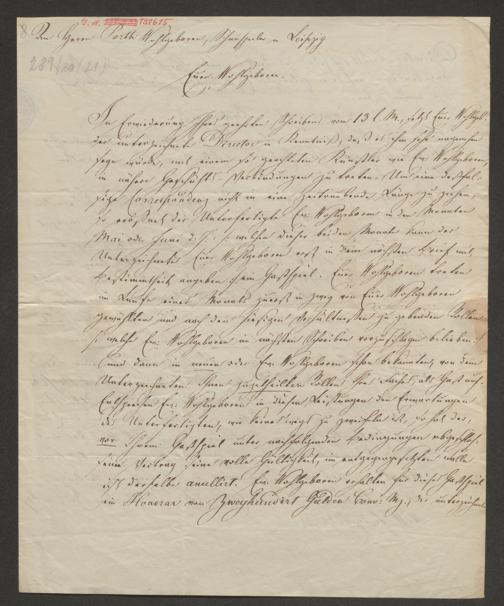 I. N. 131615
289/60/21
An Herrn Porth Wohlgeboren, Schauspieler in Leipzig
Euer Wohlgeboren!
In Erwiederung Ihres geehrten Schreibens vom 13 l. M., setzt Euer Wohlgeb.
der unterzeichnete Director in Kenntniß, daß es ihm sehr angenehm
seyn würde, mit einem so geachteten Künstler wie Euer Wohlgeboren,
in nähere Geschäfts-Verbindungen zu treten. Um eine deßfal-
sige Correspondenz nicht in eine zeitraubende Länge zu ziehen,
so eröffnet der Unterfertigte Eu. Wohlgeboren in den Monaten
Mai oder Juni d. J. /: welchen dieser beiden Monate kann der
Unterzeichnete Euer Wohlgeboren erst in dem nächsten Brief mit
Bestimmtheit angeben :/ ein Gastspiel. Euer Wohlgeboren treten
im Laufe eines Monats zuerst in zwey von Euer Wohlgeboren
gewählten und nach den hiesigen Verhältnissen zu gebenden Rollen
/: welche Eu. Wohlgeboren im nächsten Schreiben vorzuschlagen belieben :/
und dann in neuen oder Eu. Wohlgeboren schon bekannten, von dem
Unterzeichneten Ihnen zugetheilten Rollen Ihr Fach als Gast auf.
Entsprechen Eu. Wohlgeboren in diesen Leistungen den Erwartungen
des Unterfertigten, wie keineswegs zu zweifeln ist, so hat der
vor Ihrem Gastspiel unter nachfolgenden Bedingungen abgeschlos-
sene Vertrag seine volle Gültigkeit, im entgegengesetzten Falle
ist derselbe anullirt. Eu. Wohlgeboren erhalten für dieses Gastspiel
ein Honorar von Zweyhundert Gulden Conv: Mz., der unterzeichnete